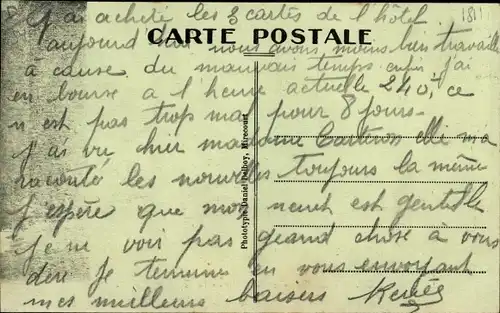 J'ai acheté les 3 cartes de l'hôtel
CARTE POSTALE
aujourd'hui nous avons moins bien travaillé
à cause du mauvais temps enfin j'ai
en bourse a l heure actuelle 240f ce
n est pas trop mal pour 8 jours-
j'ai vu hier madame elle m'a
raconté les nouvelles toujours la même
j'espère que mon neveu est gentille
je ne voir pas grand chose à vous
dire je termine en vous envoyant
mes meilleurs baisers Renée
Phototypie Daniel Delboy, Mirecourt